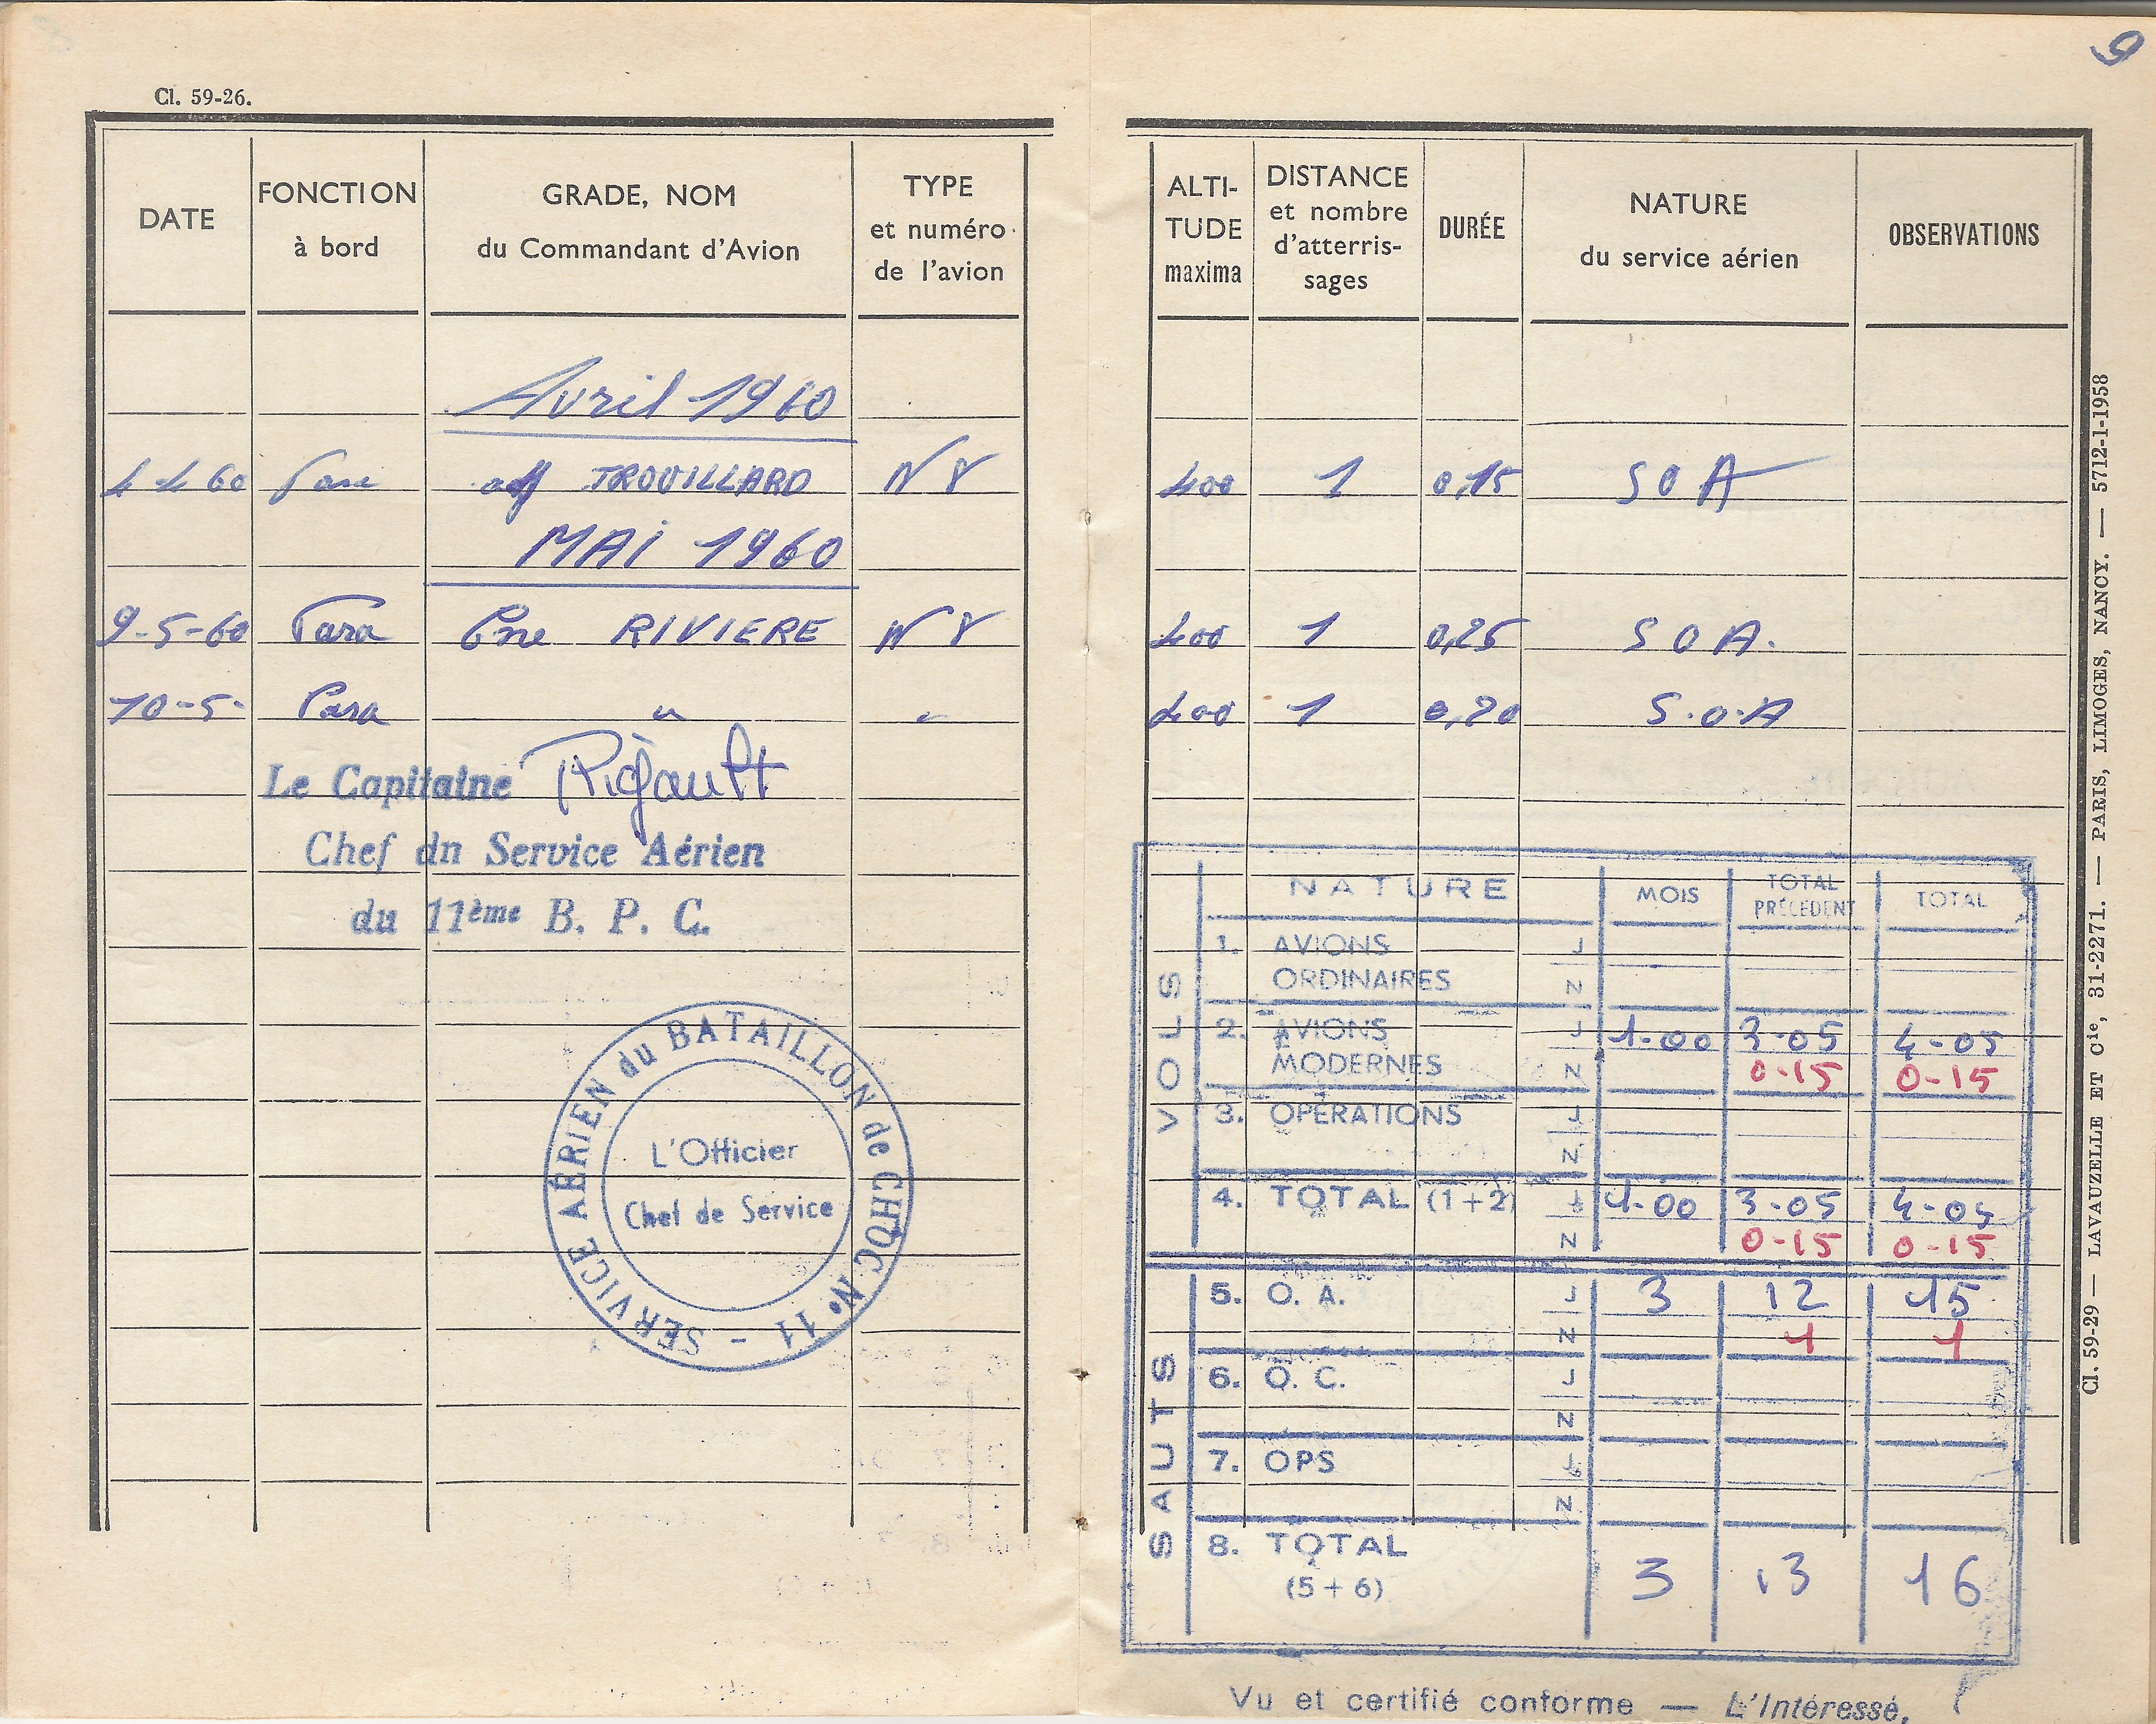 9
Cl. 59-26.
DATE FONCTION à bord GRADE, NOM du Commandant d'Avion TYPE et numéro de l'avion ALTI-TUDE maxima DISTANCE et nombre d'atterris-sages DURÉE NATURE du service aérien OBSERVATIONS
Avril 1960
4 4 60 Para adj TROUILLARD N 8 400 1 0,15 S O A
MAI 1960
9-5-60 Para Cne RIVIERE N 8 400 1 0,25 S O A.
10-5- Para " " 400 1 0,20 S.O.A
Le Capitaine Rigault
Chef dn Service Aérien
du 11ème B. P. C.
SERVICE AÉRIEN du BATAILLON de CHOC N° 11 -
L'Officier
Chef de Service
NATURE MOIS TOTAL PRÉCÉDENT TOTAL
VOLS
1. AVIONS ORDINAIRES J
N
2. AVIONS MODERNES J 1-00 3-05 4-05
N 0-15 0-15
3. OPÉRATIONS J
N
4. TOTAL (1+2) J 1-00 3-05 4-05
N 0-15 0-15
SAUTS
5. O. A. J 3 12 15
N 1 1
6. O. C. J
N
7. OPS J
N
8. TOTAL (5+6) 3 13 16
Vu et certifié conforme — L'Intéressé,
Cl. 59-29 — LAVAUZELLE ET Cie, 31-2271. — PARIS, LIMOGES, NANCY. — 5712-1-1958